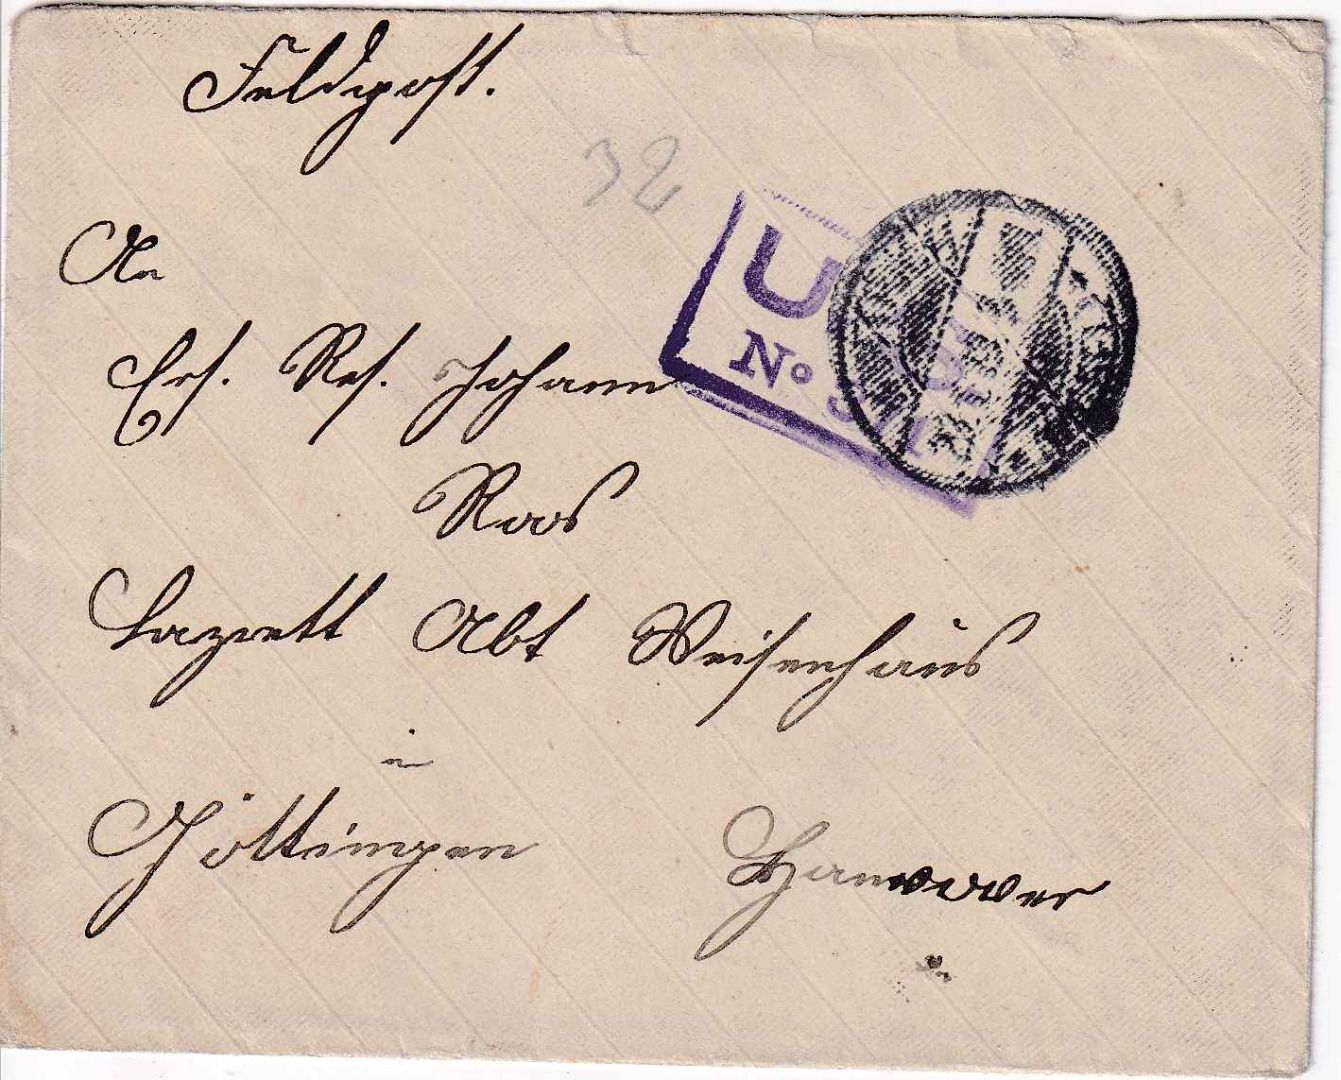 Feldpost.
32
An
Ers. Res. Johann
Roos
Lazrett Abt Weisenhaus
in
Göttingen Hannover
U
No